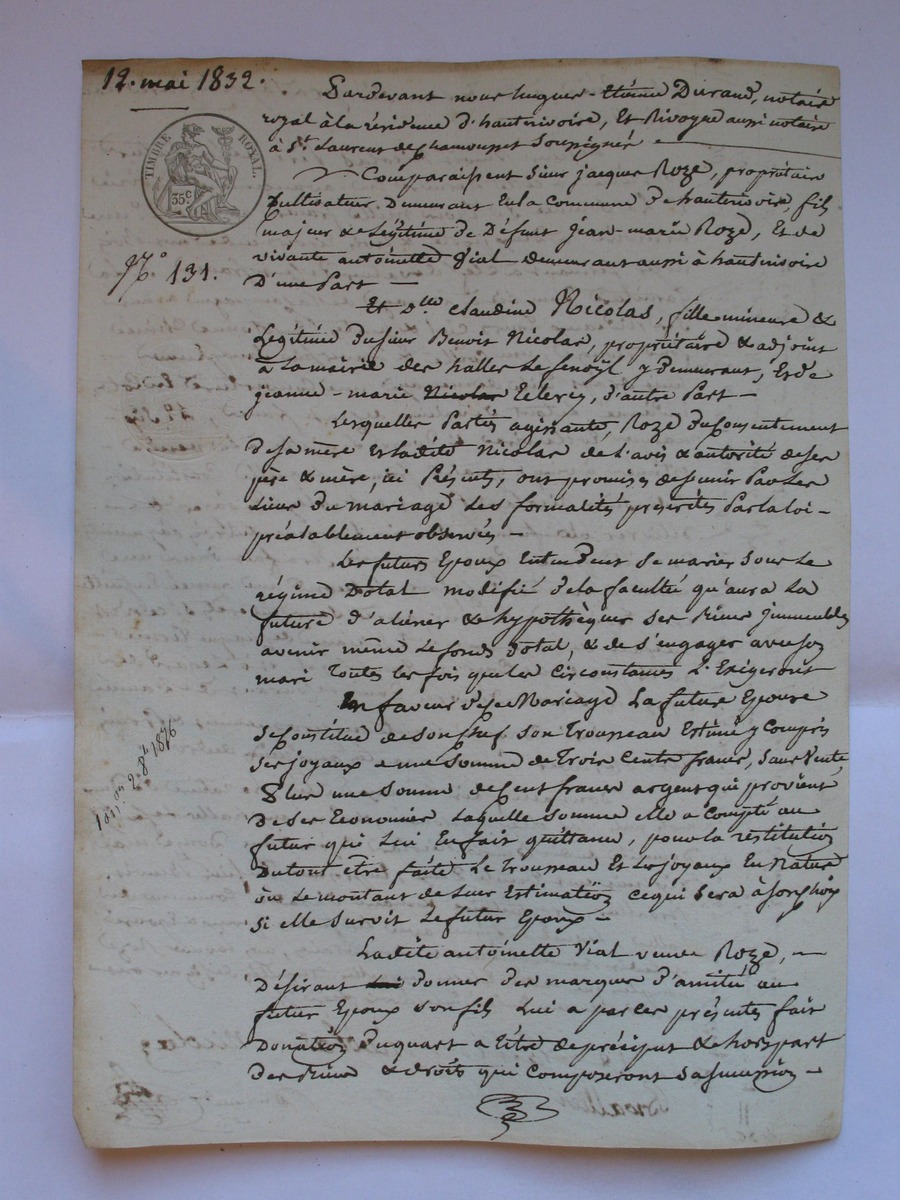 12. mai 1832.
Pardevant nous hugues-Etienne Durand, notaire
royal à la résidence d'hauterivoire, et Rivoyre aussi notaire
à St. Laurent de Chamousset Soussigné
TIMBRE ROYAL.
35 C
Comparaissent Sieur jacques Roze, propriétaire
Cultivateur Demeurant En la Commune De hauterivoire, fils
majeur & Légitime De Défunt Jean-marie Roze, Et de
vivante antoinette Vial demeurant aussi à hauterivoire
D'une Part
N.° 131.
Et Dlle claudine Nicolas, fille mineure &
Légitime Du Sieur Benoit Nicolas, propriétaire & adjoint
à la mairie des halles Le fenoÿl y Demeurant, Et de
jeanne-marie Nicolas, D'autre Part
Lesquelles Parties agissante, Roze Du Consentement
De sa mère Et ladite Nicolas de L'avis & autorité de ses
père & mère, ici Présents, ont promis de s'unir Par Les
Liens Du mariage Les formalités prescrites Par la loi
préalablement observées
Les futurs Epoux Entendent Se marier Sous Le
régime Dotal modifié De la faculté qu'aura La
future D'aliéner & hypothèquer Ses Biens Immeubles
avenir même Le fonds Dotal, & de s'engager avec son
mari Toutes les fois que les Circonstances L'Exigeront
En faveur De Ce Mariage La future Epouse
Se Constitue de Son Chef Son Trousseau Estimé y Compris
Ses joyaux a une Somme de Trois Cents francs, Sans Vente
& Plus une Somme de Cent francs argent qui provient
De ses Economies Laquelle Somme elle a Compté au
futur qui Lui En fait quittance, pour la restitution
Du tout être faite Le Trousseau Et Les joyaux En Nature
ou Le montant de Leur Estimation ce qui Sera à Son Choix
Si elle Survit Le futur Epoux
2 8bre 1876
Ladite antoinette Vial veuve Roze,
Désirant Donner Des marques D'amitié au
futur Epoux Son fils Lui a par ces présentes fait
Donation Du quart a titre de préciput & hors part
Des Biens & droits qui Composeront Sa Succession